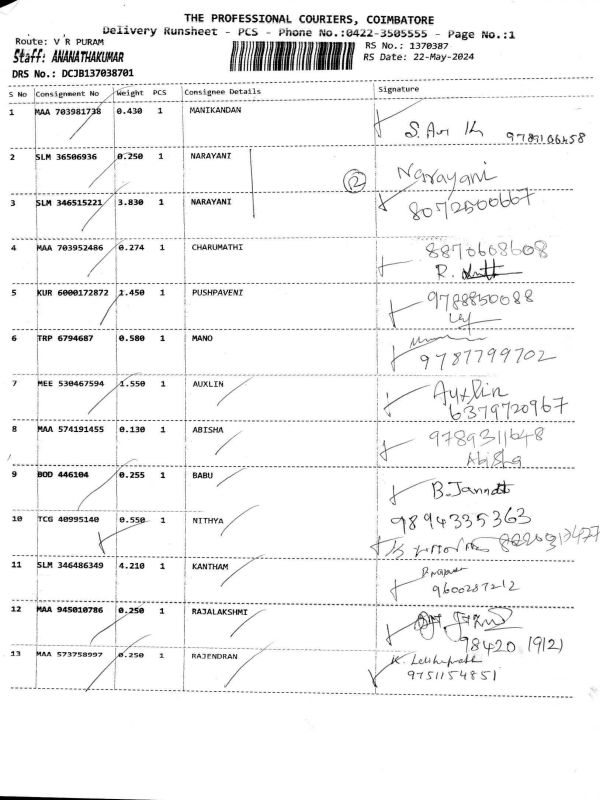 THE PROFESSIONAL COURIERS, COIMBATORE
Delivery Runsheet - PCS - Phone No.:0422-3505555 - Page No.:1
Route: V R PURAM
RS No.: 1370387
Staff: ANANATHAKUMAR
RS Date: 22-May-2024
DRS No.: DCJB137038701
S No Consignment No Weight PCS Consignee Details Signature
1 MAA 703981738 0.430 1 MANIKANDAN
9789106458
2 SLM 36506936 0.250 1 NARAYANI
2 Narayani
3 SLM 346515221 3.830 1 NARAYANI 8072500667
4 MAA 703952486 0.274 1 CHARUMATHI 8870608608
R.
5 KUR 6000172872 1.450 1 PUSHPAVENI 9788850088
6 TRP 6794687 0.580 1 MANO
9787799702
7 MEE 530467594 1.550 1 AUXLIN Auxlin
6379720967
8 MAA 574191455 0.130 1 ABISHA 9789311648
Abisha
9 BOD 446104 0.255 1 BABU
9894335363
10 TCG 40995140 0.550 1 NITHYA
11 SLM 346486349 4.210 1 KANTHAM
9600287212
12 MAA 945010786 0.250 1 RAJALAKSHMI
98420 19121
13 MAA 573758997 0.250 1 RAJENDRAN
9751154851